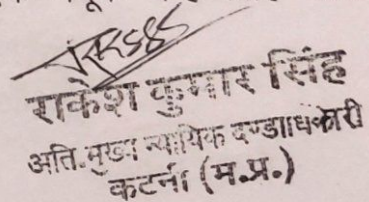 राकेश कुमार सिंह
अति. मुख्य न्यायिक दण्डाधिकारी
कटनी (म.प्र.)